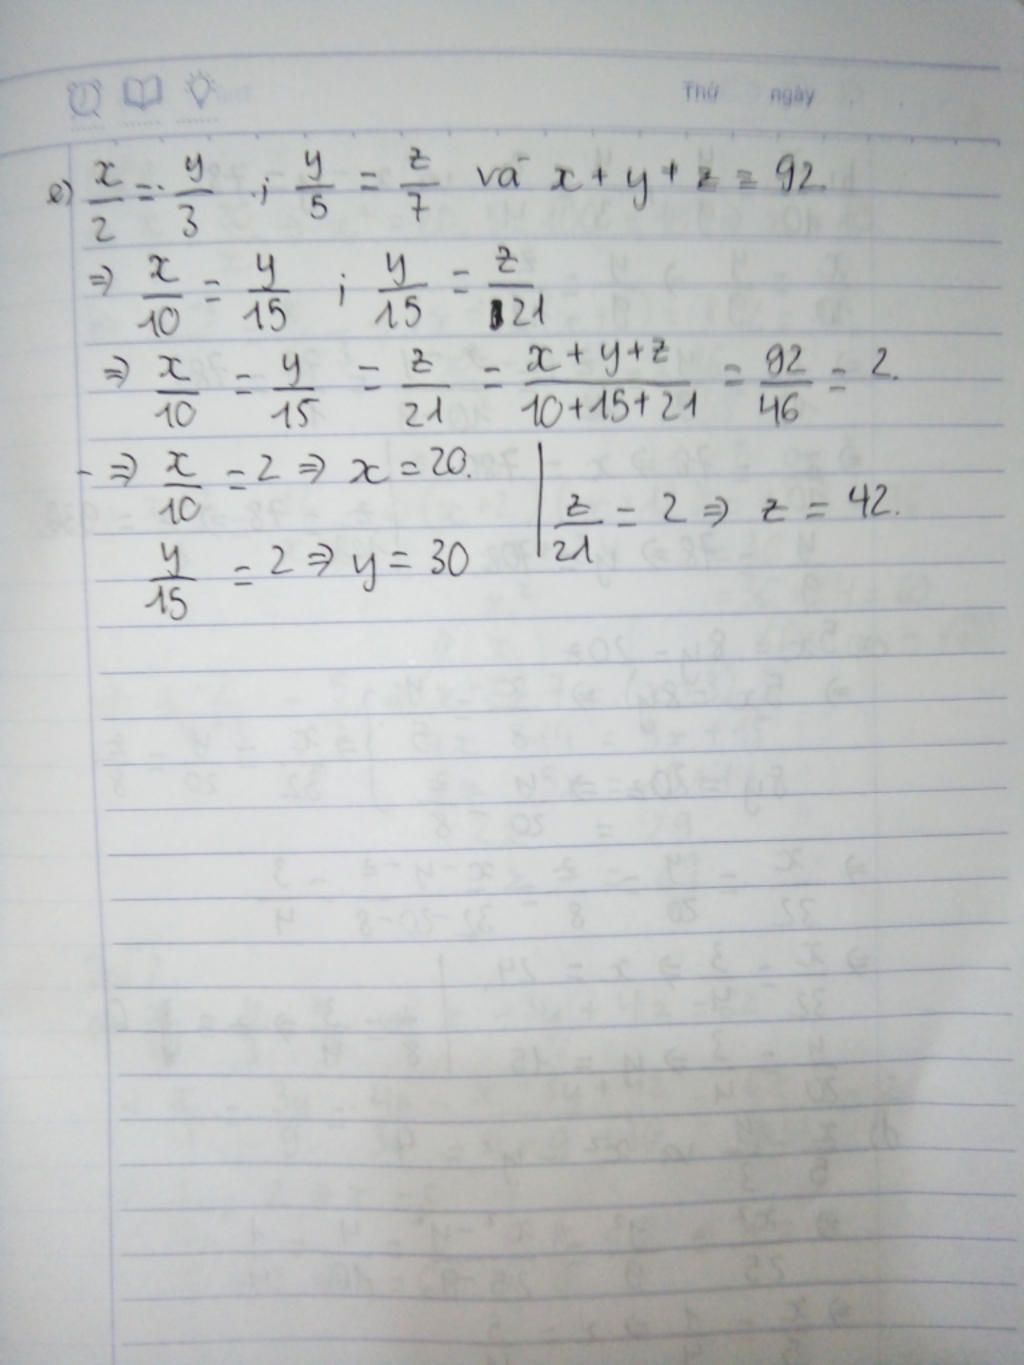 Thứ ngày
e) x/2 = y/3 ; y/5 = z/7 và x + y + z = 92.
⇒ x/10 = y/15 ; y/15 = z/21
⇒ x/10 = y/15 = z/21 = (x + y + z)/(10+15+21) = 92/46 = 2.
- ⇒ x/10 = 2 ⇒ x = 20.
y/15 = 2 ⇒ y = 30
z/21 = 2 ⇒ z = 42.